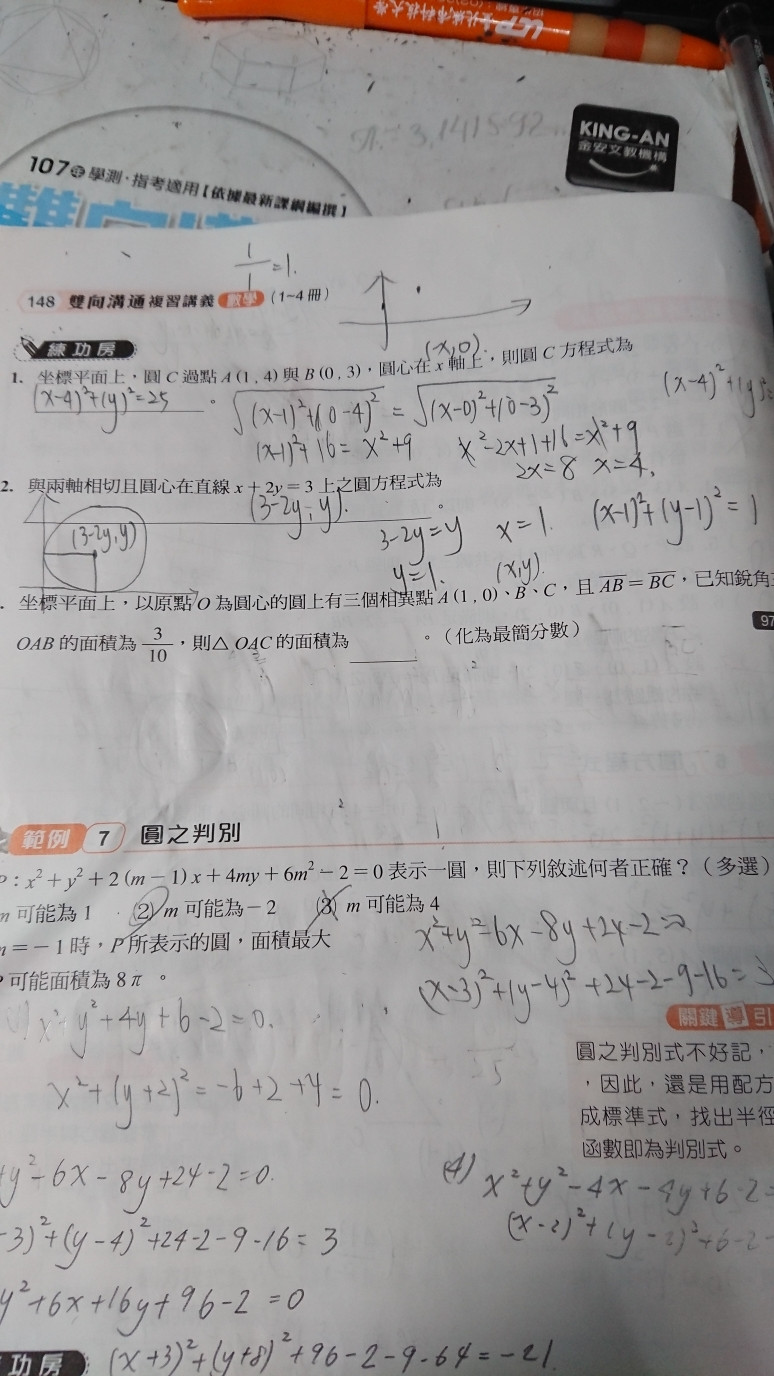 UCP 臺北城市科技大學
π = 3.141592
KING-AN
金安文教機構
107年學測·指考適用【依據最新課綱編撰】
雙向溝
1/1=1.
148 雙向溝通複習講義 數學 (1~4冊)
練功房
(x,0).
1. 坐標平面上,圓 C 過點 A(1, 4) 與 B(0, 3),圓心在 x 軸上,則圓 C 方程式為
(x-4)²+(y)²=25 。
√(x-1)²+(0-4)² = √(x-0)²+(0-3)²
(x-1)²+16= x²+9
x²-2x+1+16=x²+9
2x=8 x=4,
2. 與兩軸相切且圓心在直線 x + 2y = 3 上之圓方程式為 。
(3-2y,y).
(3-2y,y)
3-2y=y x=1. (x-1)²+(y-1)²=1
y=1. (x,y).
. 坐標平面上,以原點 O 為圓心的圓上有三個相異點 A(1, 0)、B、C,且 AB = BC,已知銳角
OAB 的面積為 3/10,則△ OAC 的面積為 。(化為最簡分數)
97
範例 7 圓之判別
: x² + y² + 2(m − 1)x + 4my + 6m² − 2 = 0 表示一圓,則下列敘述何者正確?(多選)
m 可能為 1 (2) m 可能為 − 2 (3) m 可能為 4
= − 1 時,P 所表示的圓,面積最大
可能面積為 8π 。
x²+y²-6x-8y+24-2=0
(x-3)²+(y-4)²+24-2-9-16=3
x²+y²+4y+6-2=0.
x²+(y+2)²=-6+2+4=0.
關鍵導引
圓之判別式不好記,
,因此,還是用配方
成標準式,找出半徑
函數即為判別式。
y²-6x-8y+24-2=0.
-3)²+(y-4)²+24-2-9-16=3
y²+6x+16y+96-2=0
(4) x²+y²-4x-4y+6-2=
(x-2)²+(y-2)²+6-2-
功房
(x+3)²+(y+8)²+96-2-9-64=-21.